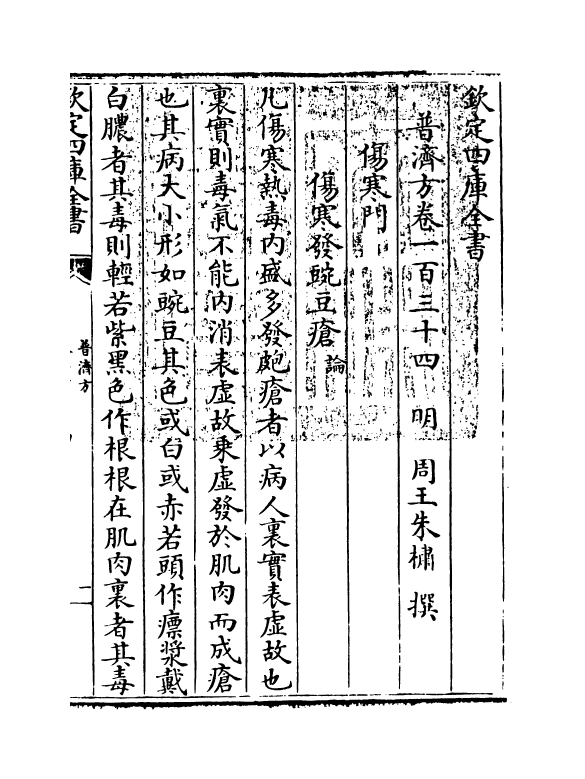 欽定四庫全書
普濟方卷一百三十四 明 周王朱橚 撰
傷寒門
傷寒發豌豆瘡論
凡傷寒熱毒内盛多發皰瘡者以病人裏實表虛故也
裏實則毒氣不能内消表虛故乘虛發於肌肉而成瘡
也其病大小形如豌豆其色或白或赤若頭作瘭漿戴
白膿者其毒則輕若紫黑色作根根在肌肉裏者其毒
欽定四庫全書
普濟方
二